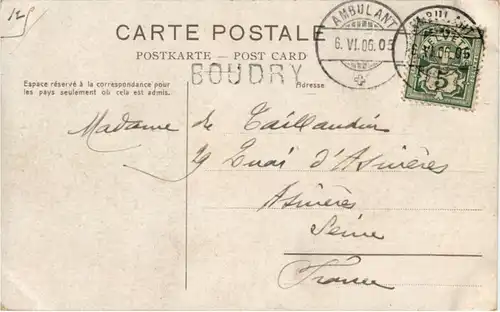 125
CARTE POSTALE
POSTKARTE - POST CARD
BOUDRY
Espace réservé à la correspondance pour
les pays seulement où cela est admis.
Adresse
AMBULANT
6. VI. 06. 05
5
Madame de Taillandier
29 Quai d'Asnières
Asnières
Seine
France